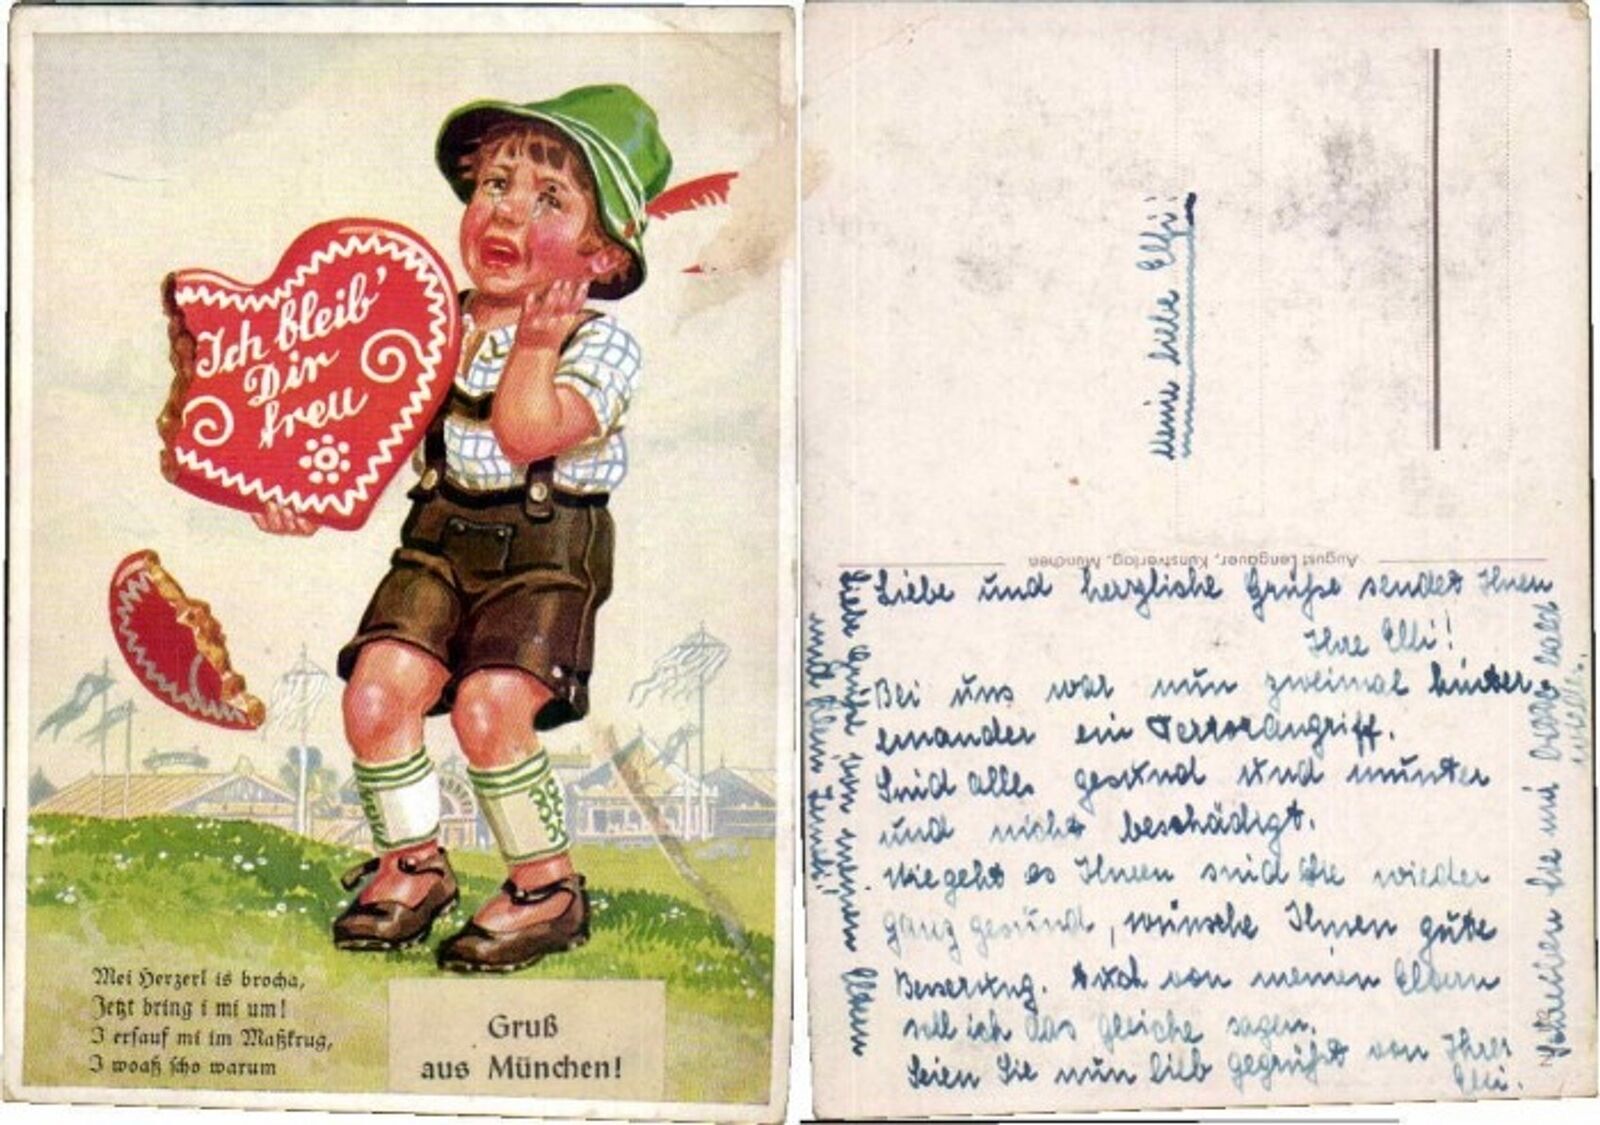 Ich bleib'
Dir
treu
Mei Herzerl is brocha,
Jetzt bring i mi um!
I ersauf mi im Maßkrug,
I woaß scho warum
Gruß
aus München!
Meine liebe Elfi!
August Lengauer, Kunstverlag, München
Liebe und herzliche Grüße sendet Ihnen
Ihre Elli!
Bei uns war nun zweimal hinter-
einander ein Terrorangriff.
Sind alle gesund und munter
und nicht beschädigt.
Wie geht es Ihnen sind Sie wieder
ganz gesund, wünsche Ihnen gute
Besserung. Auch von meinen Eltern
soll ich das gleiche sagen.
Seien Sie nun lieb gegrüßt von Ihrer
Elli.
Schreiben Sie mir bald
Liebe Grüße von meinen Eltern
und